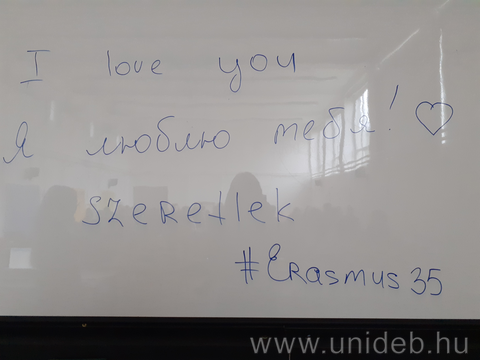 I love you
Я люблю тебя! ♡
szeretlek
#Erasmus 35
www.unideb.hu